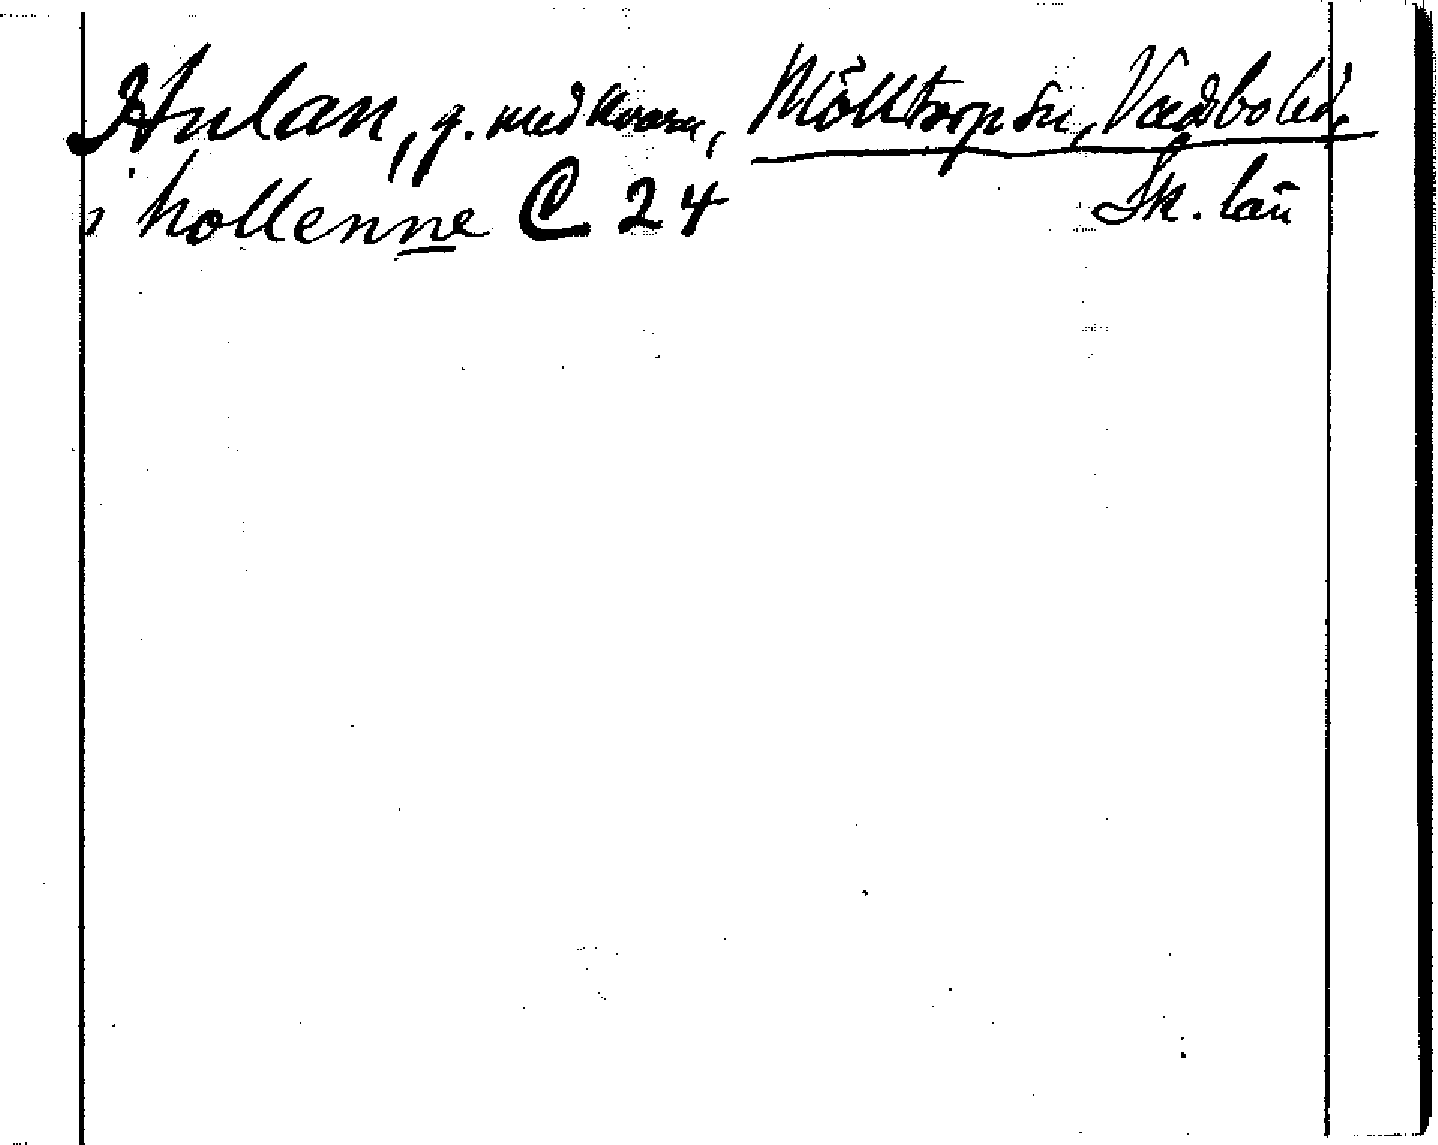 Hulan, g. med kvarn, Mölltorp sn, Vadsbo hd.
i hollenne C 24 Sk. län